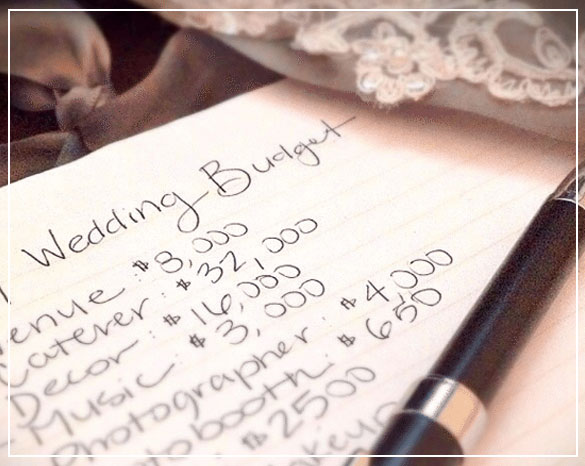 Wedding Budget
Venue: $8,000
Caterer: $32,000
Decor: $16,000
Music: $3,000
Photographer: $4,000
Photobooth: $650
$2500